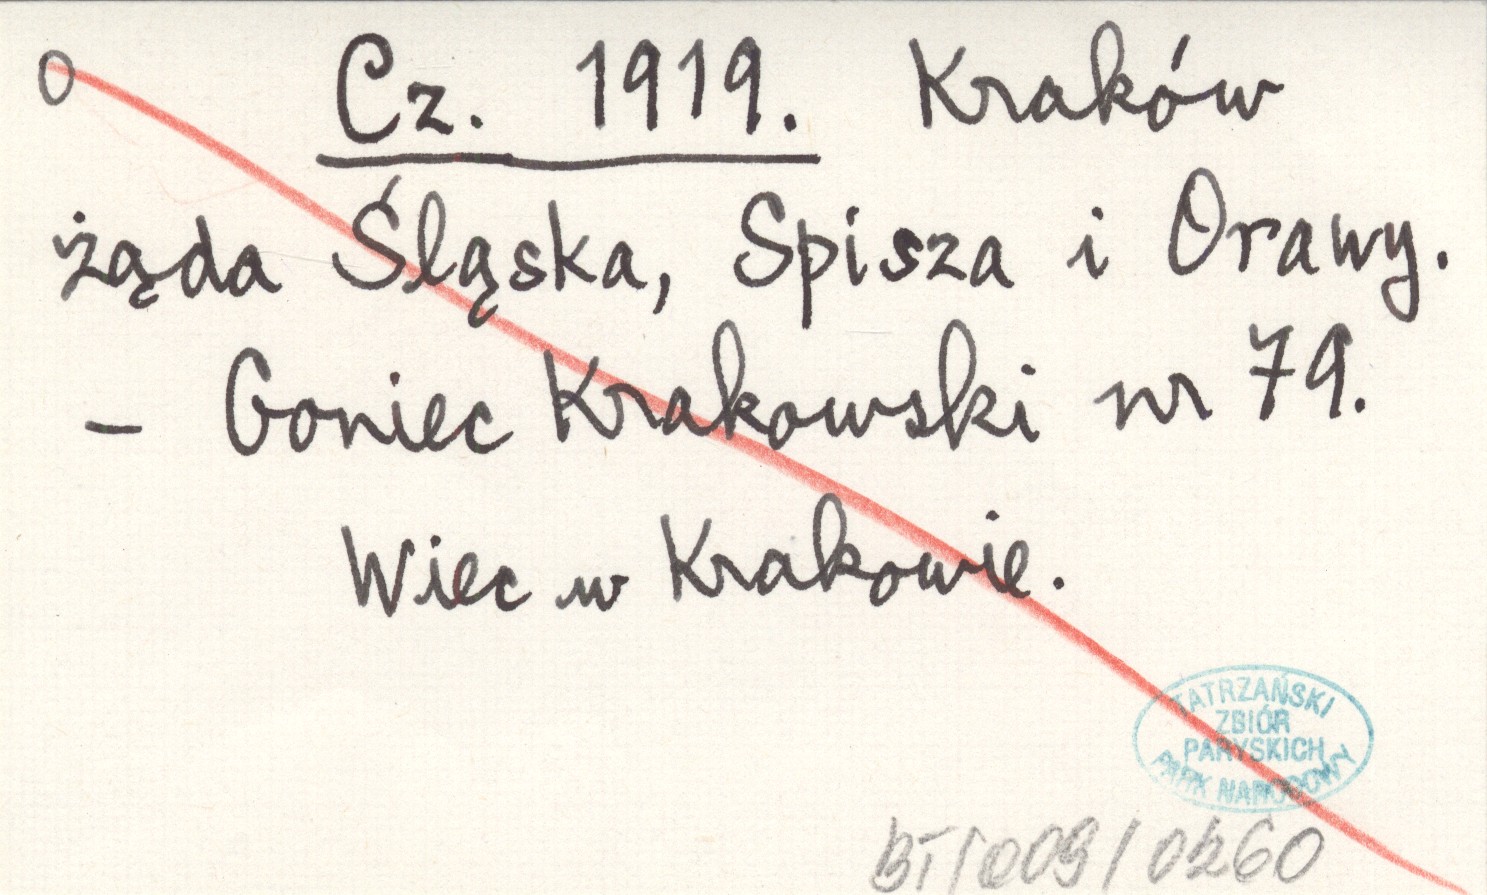 O Cz. 1919. Kraków
żąda Śląska, Spisza i Orawy.
– Goniec Krakowski nr 79.
Wiec w Krakowie.
TATRZAŃSKI
ZBIÓR
PARYSKICH
PARK NARODOWY